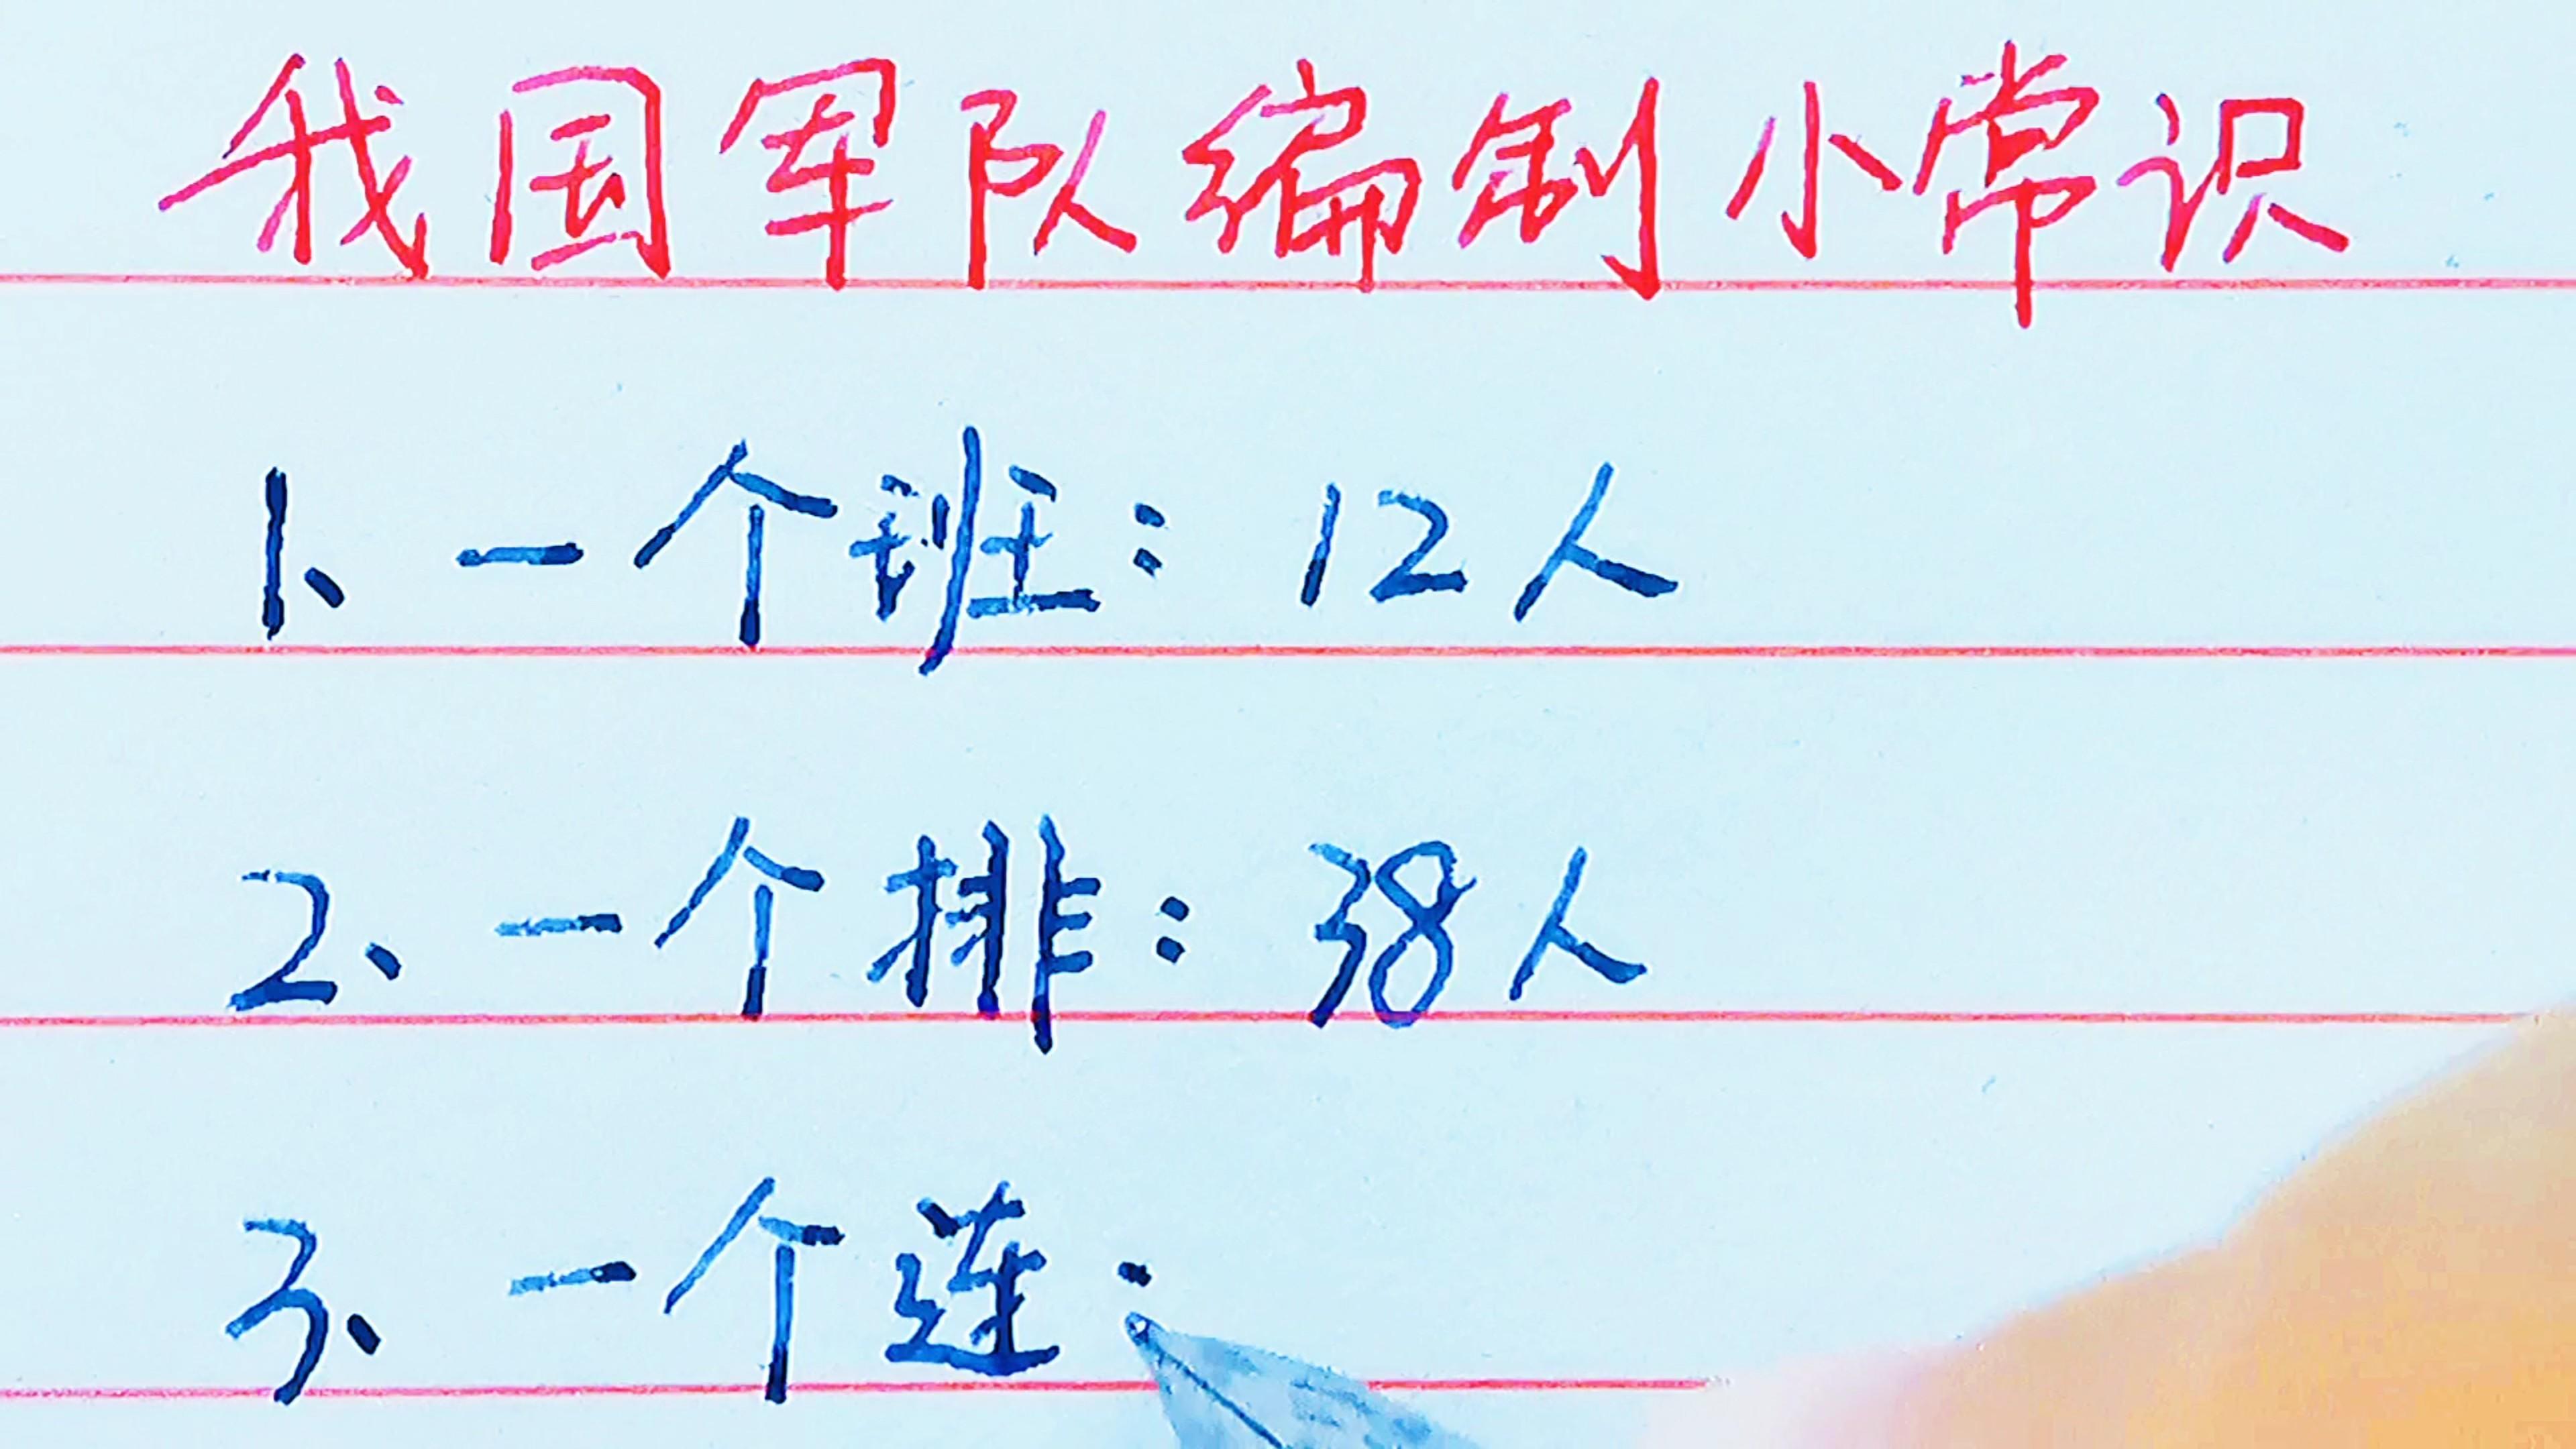 我国军队编制小常识
1、一个班：12人
2、一个排：38人
3、一个连：